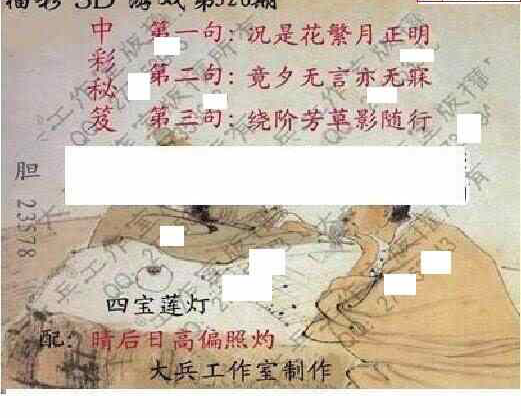 福彩3D游戏第320期
中彩秘笈
第一句:况是花繁月正明
第二句:竟夕无言亦无寐
第三句:绕阶芳草影随行
胆 23578
四宝莲灯
配:晴后日高偏照灼
大兵工作室制作